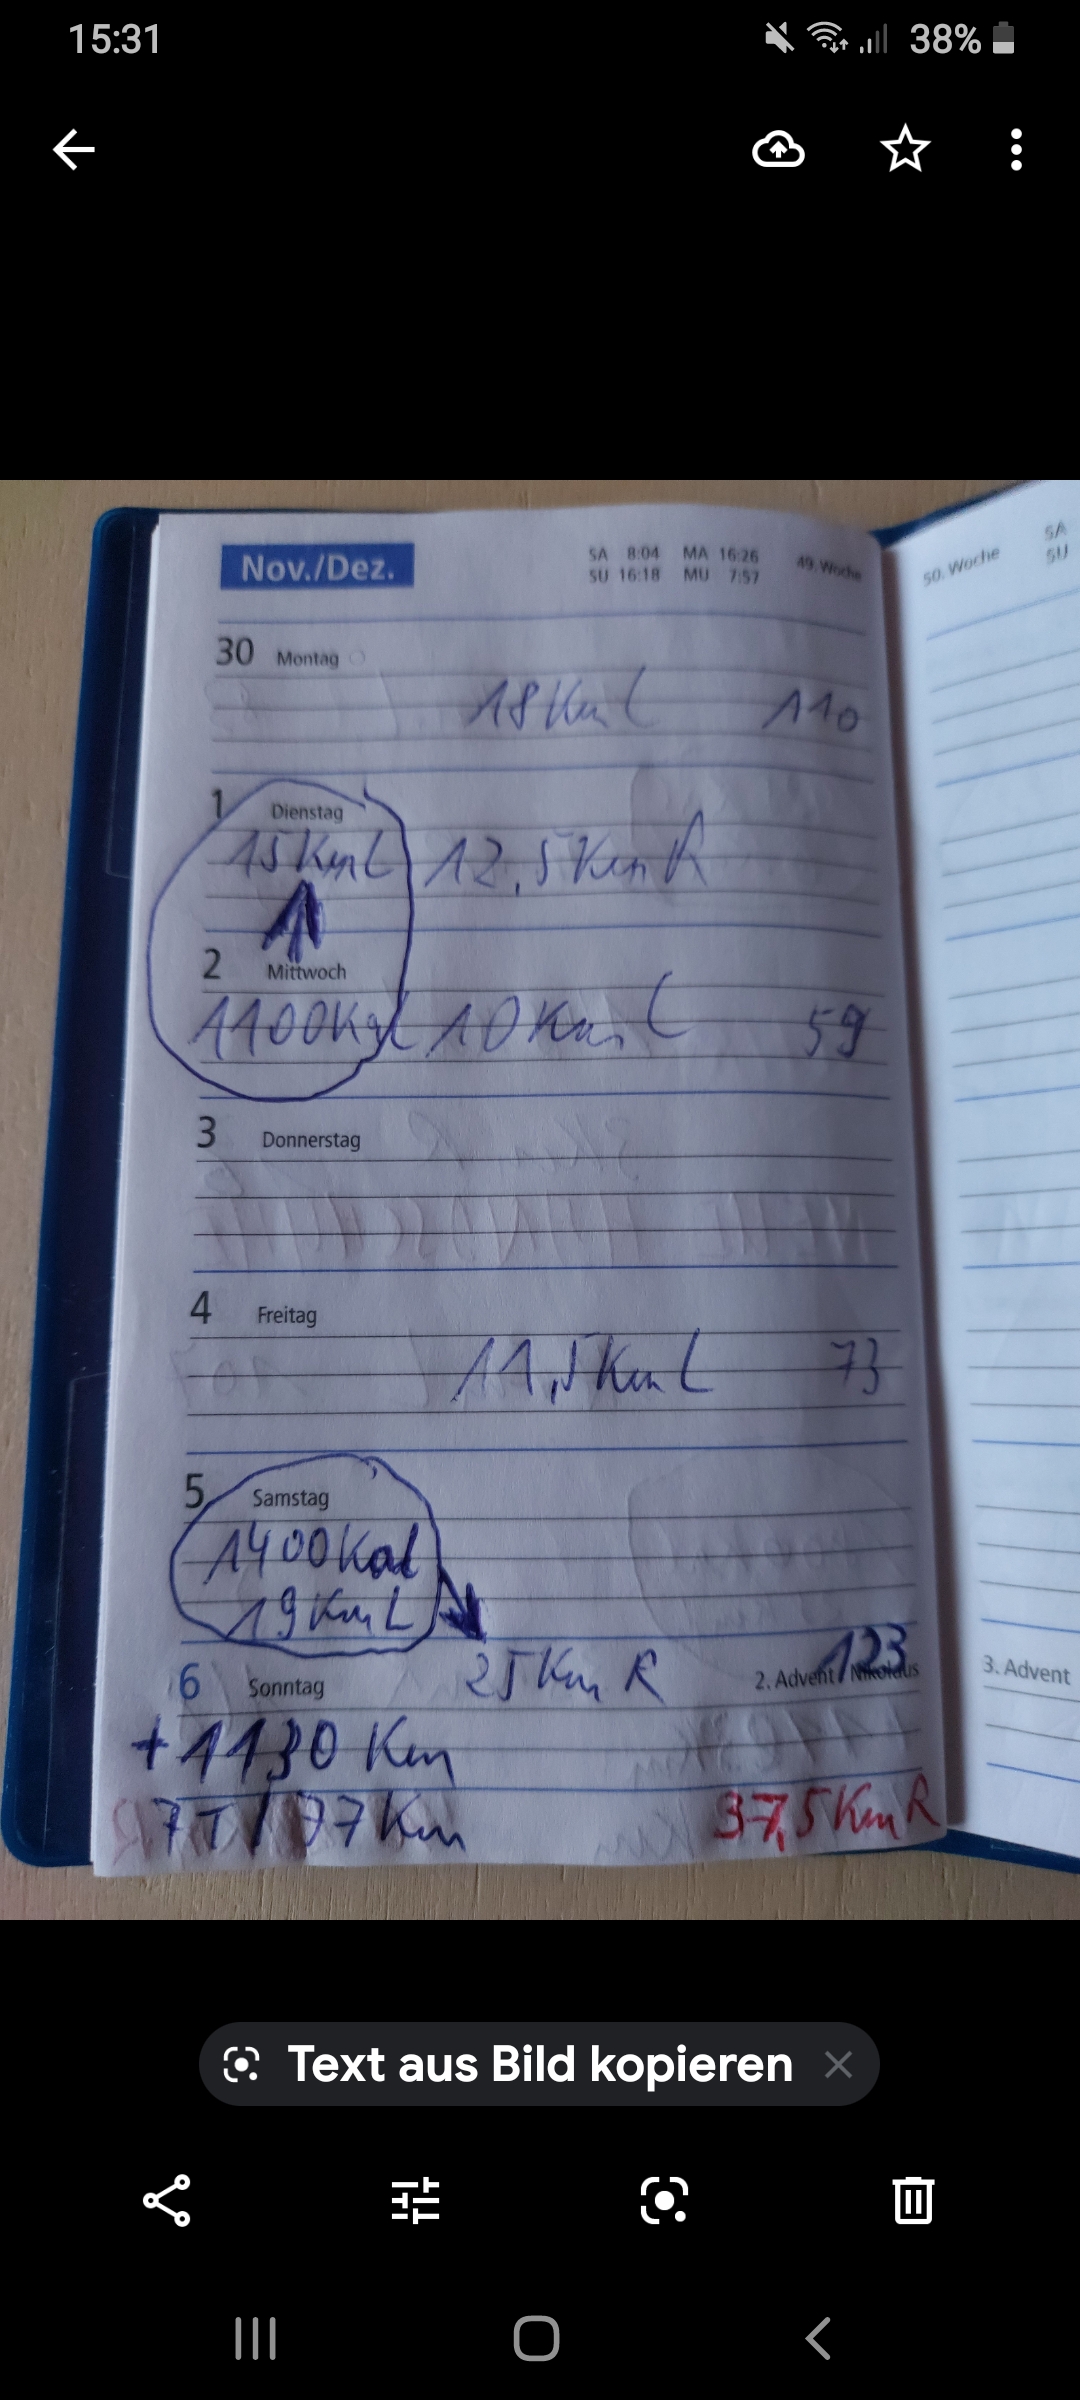 15:31 38%
Nov./Dez. SA 8:04 MA 16:26 49. Woche
SU 16:18 MU 7:57
50. Woche SA
SU
30 Montag
18 Km L 110
1 Dienstag
15 Km L 12,5 Km R
2 Mittwoch
1100 Kal 10 Km L 59
3 Donnerstag
4 Freitag
11,5 Km L 73
5 Samstag
1400 Kal
19 Km L
123
6 Sonntag 25 Km R 2. Advent / Nikolaus
3. Advent
+1130 Km
7T / 77 Km 37,5 Km R
Text aus Bild kopieren